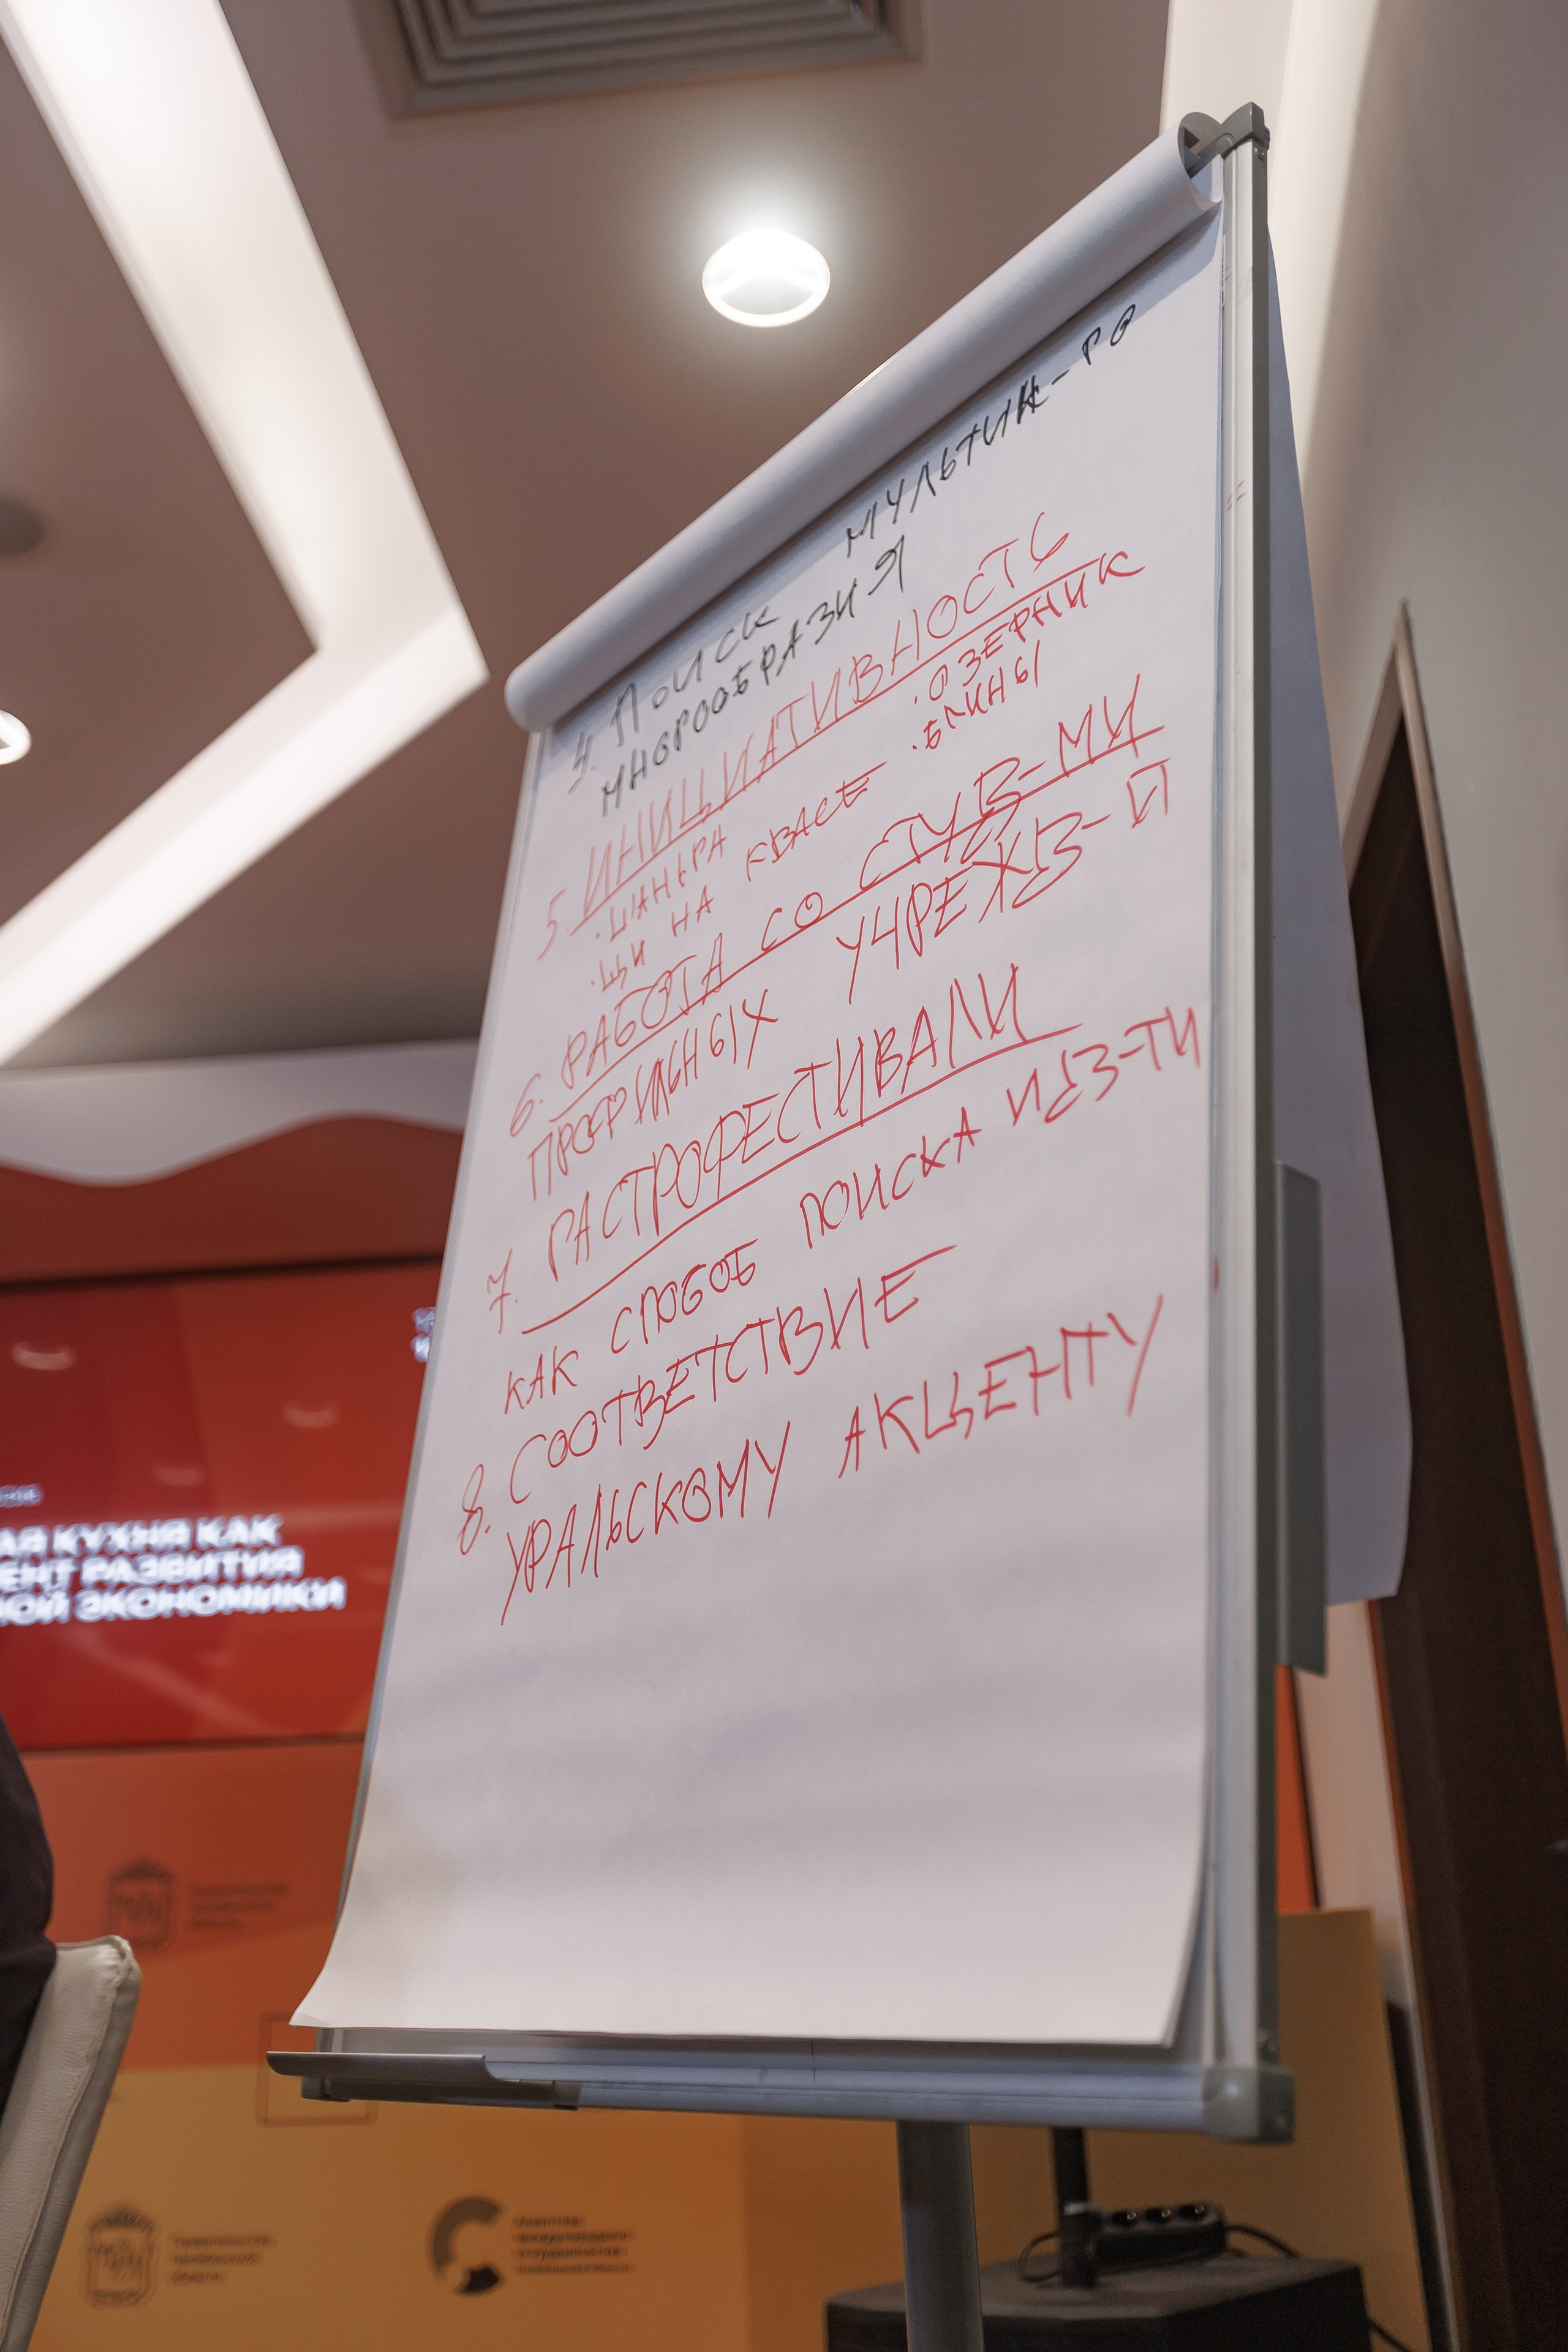 МУЛЬТИК-РО
4. ПОИСК
МНОГООБРАЗИЯ
5. ИНИЦИАТИВНОСТЬ
· ШАНЬГА
· ОЗЕРНИК
· ЩИ НА КВАСЕ
· БЛИНЫ
6. РАБОТА СО СТУД-МИ
ПРОФИЛЬНЫХ УЧРЕЖД-Й
7. ГАСТРОФЕСТИВАЛИ
КАК СПОСОБ ПОИСКА ИД-ТИ
8. СООТВЕТСТВИЕ
УРАЛЬСКОМУ АКЦЕНТУ
АЯ КУХНЯ КАК
ЕНТ РАЗВИТИЯ
НОЙ ЭКОНОМИКИ